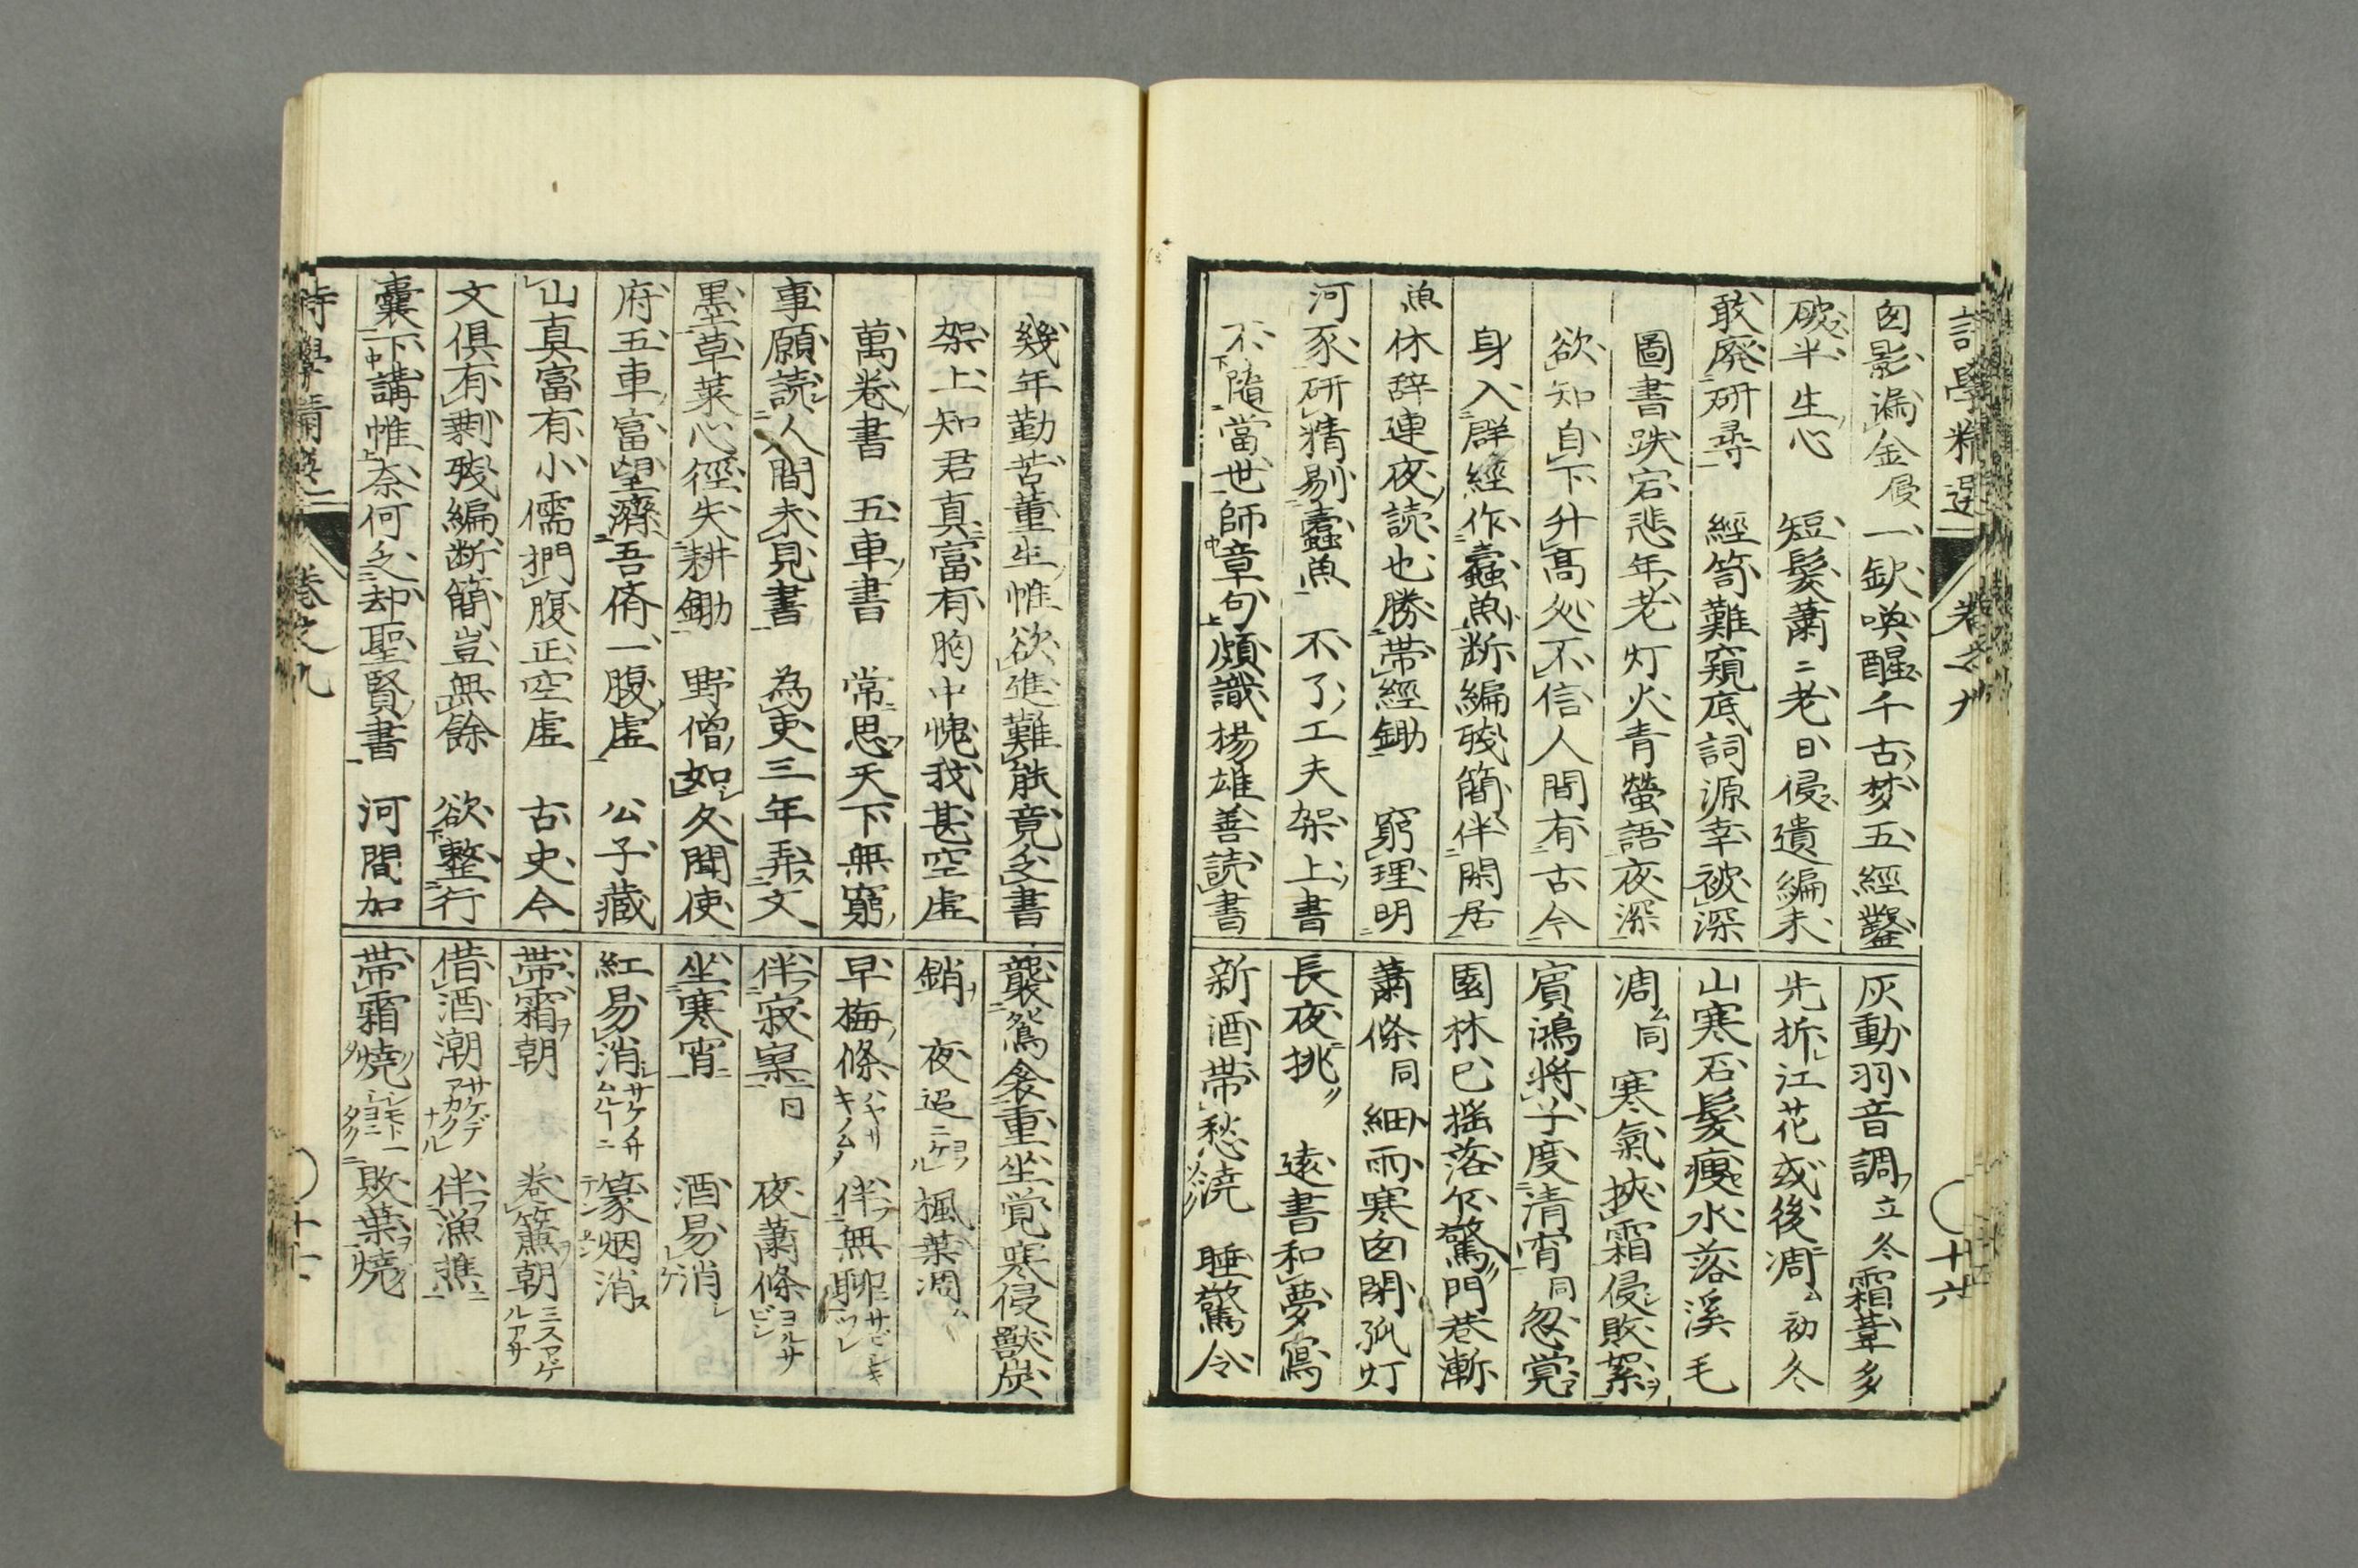 詩學精選 卷之九 十六
囱影漏金侵一欽喚醒千古梦五經鑿
破半生心 短髮蕭ニ老日侵遺編未
敢廃研尋 經笥難窺底詞源幸被深
圖書跌宕悲年老灯火青螢語夜深
欲知自下升高处不信人間有古今
身入群經作蠹魚断編残簡伴閑居
魚休辞連夜読也勝帯經鋤 窮理明
河豕研精剔蠹魚 不了工夫架上書
不隨當世師章句頗識楊雄善読書
灰動羽音調 立冬 霜葦多
先折江花或後凋 初冬
山寒石髮痩水落溪毛
凋 同 寒氣挾霜侵敗絮
賓鴻將子度清宵 同 忽覚
園林已揺落仄驚門巷漸
蕭條 同 細雨寒囱閑孤灯
長夜挑 遠書和夢寫
新酒帯愁澆 睡驚令
幾年勤苦董生帷欲進難能竟乏書
架上知君真富有胸中愧我甚空虚
萬卷書 五車書 常思天下無窮
事願読人間未見書 為吏三年弄文
墨草莱心徑失耕鋤 野僧如久聞使
府五車富望濟吾儕一腹虚 公子藏
山真富有小儒捫腹正空虚 古史今
文俱有剰残編断簡豈無餘 欲整行
囊下講帷奈何乏却聖賢書 河間加
襲鴛衾重坐覚寒侵獣炭
銷 夜迢ニ 楓葉凋
早梅條 ハヤサキノムメ 伴無聊 サビシキニツレ
伴寂寞 同 夜蕭條 ヨルサビシ
坐寒宵 酒易消
紅易消 篆烟消
帯霜朝 巻簾朝 ミスアゲルアサ
借酒潮 サケデアカクナル 伴漁樵
帯霜燒 敗葉燒
詩學精選 卷之九